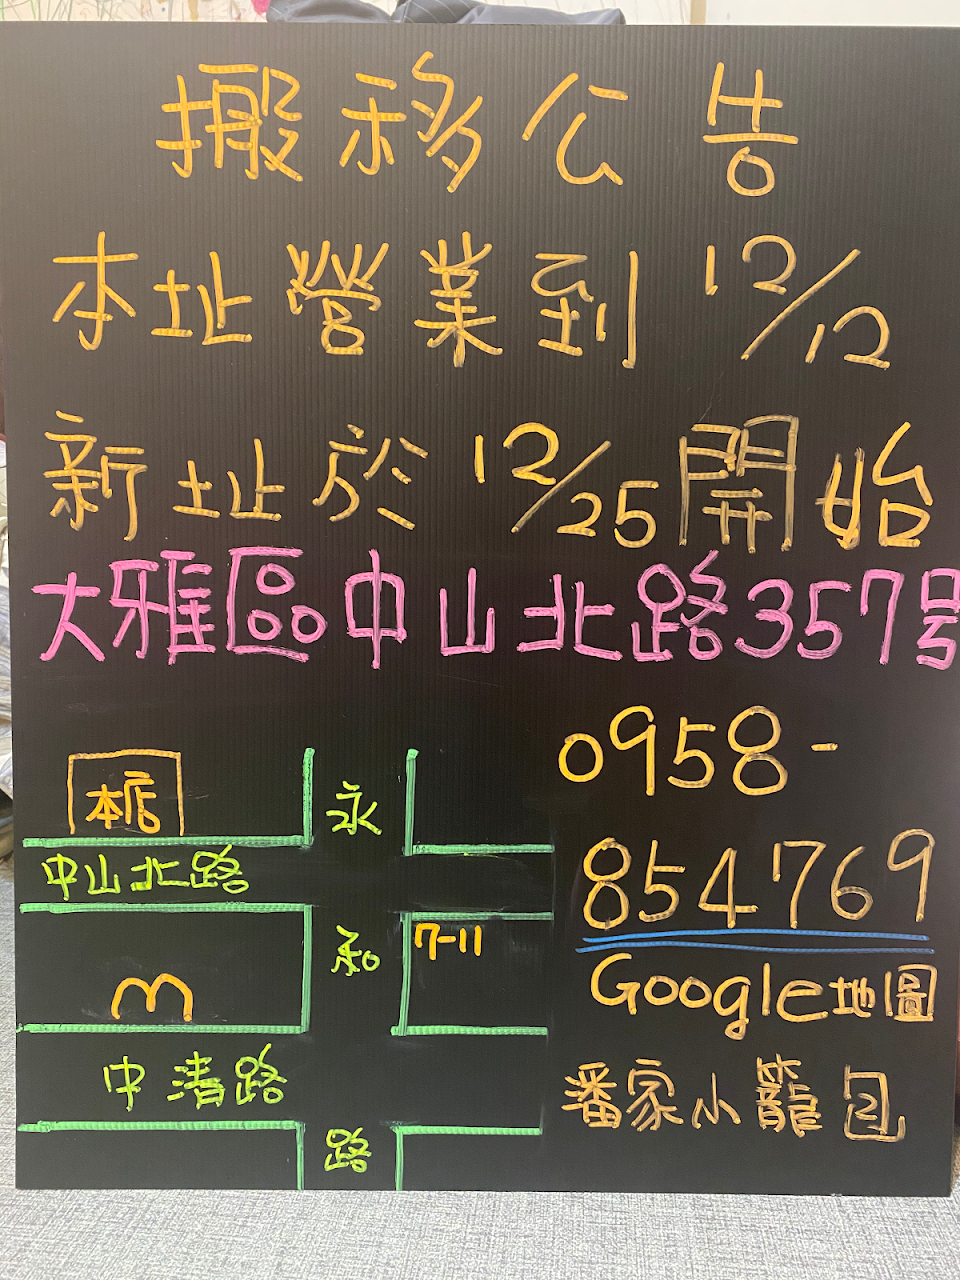 搬移公告
本址營業到 12/12
新址於 12/25開始
大雅區中山北路357号
0958-
854769
Google地圖
潘家小籠包
本店
永
中山北路
和
7-11
M
中清路
路